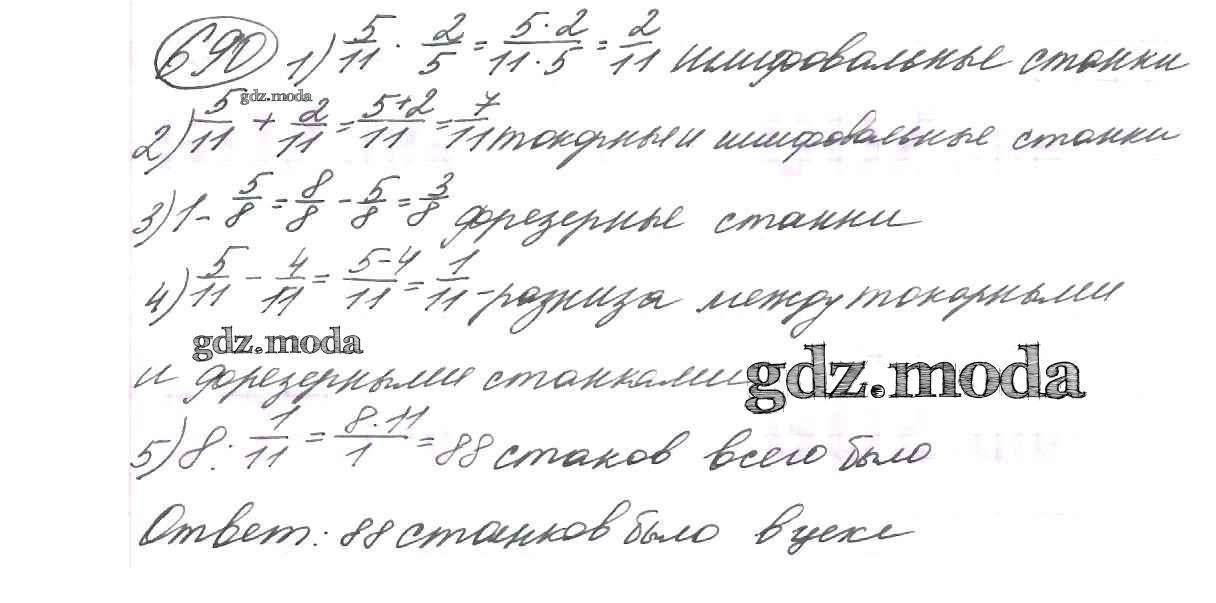 690 1) 5/11 · 2/5 = 5·2/11·5 = 2/11 шлифовальные станки
gdz.moda
2) 5/11 + 2/11 = 5+2/11 = 7/11 токарные и шлифовальные станки
3) 1 - 5/8 = 8/8 - 5/8 = 3/8 фрезерные станки
4) 5/11 - 4/11 = 5-4/11 = 1/11 - разница между токарными
gdz.moda
и фрезерными станками
gdz.moda
5) 8 : 1/11 = 8·11/1 = 88 станков всего было
Ответ: 88 станков было в цехе